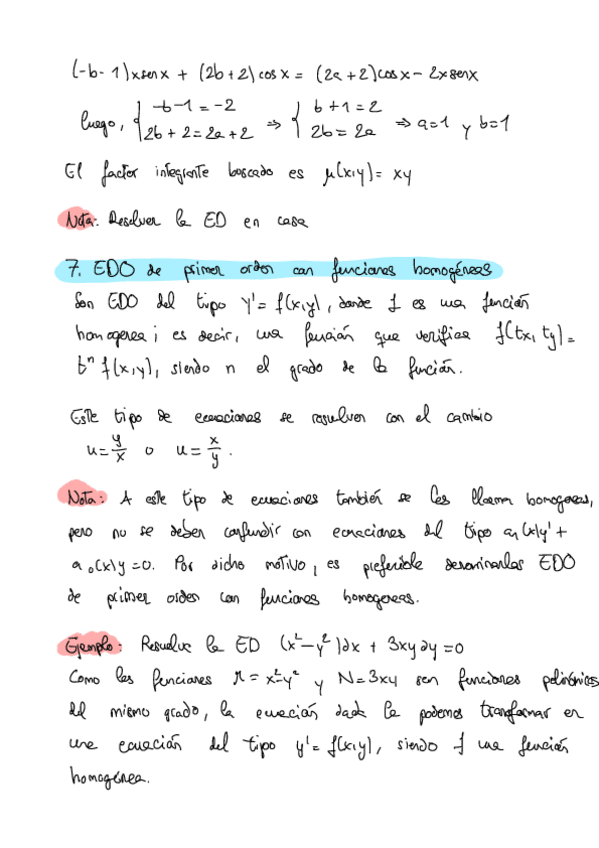 (-b-1)x sen x + (2b+2) cos x = (2a+2) cos x - 2x sen x
luego, { -b-1 = -2 ⇒ { b+1 = 2 ⇒ a=1 y b=1
2b+2 = 2a+2 2b = 2a
El factor integrante buscado es μ(x,y) = xy
Nota: Resolver la ED en casa
7. EDO de primer orden con funciones homogéneas
Son EDO del tipo y' = f(x,y), donde f es una función
homogenea; es decir, una función que verifica f(tx, ty) =
tⁿ f(x,y), siendo n el grado de la función.
Este tipo de ecuaciones se resuelven con el cambio
u = y/x o u = x/y.
Nota: A este tipo de ecuaciones también se les llama homogeneas,
pero no se deben confundir con ecuaciones del tipo a₁(x)y' +
a₀(x)y = 0. Por dicho motivo, es preferible denominarlas EDO
de primer orden con funciones homogeneas.
Ejemplo: Resuelve la ED (x²-y²)dx + 3xy dy = 0
Como las funciones M = x²-y² y N = 3xy son funciones polinómicas
del mismo grado, la ecuación dada la podemos transformar en
una ecuación del tipo y' = f(x,y), siendo f una función
homogénea.